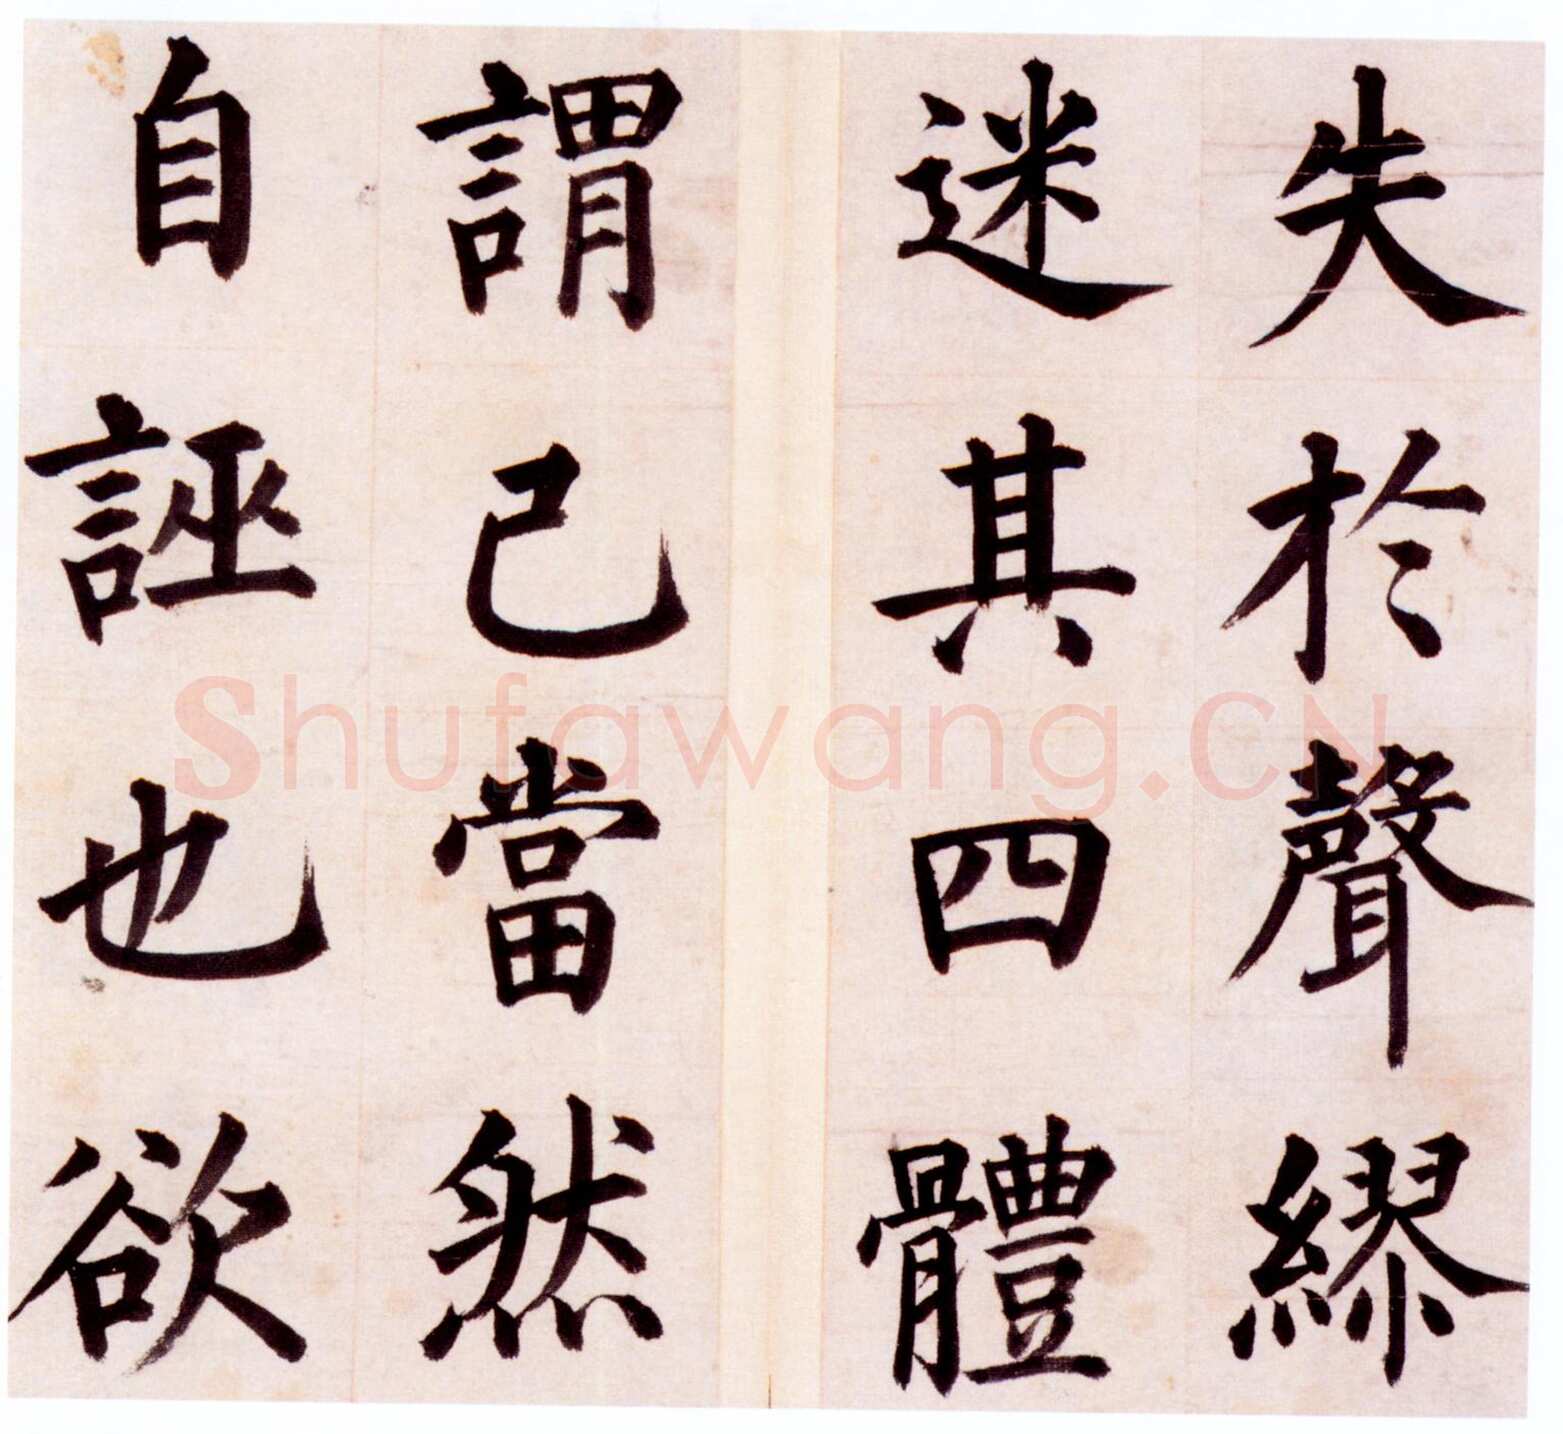 失於聲繆
迷其四體
謂己當然
自誣也欲
Shufawang.CN